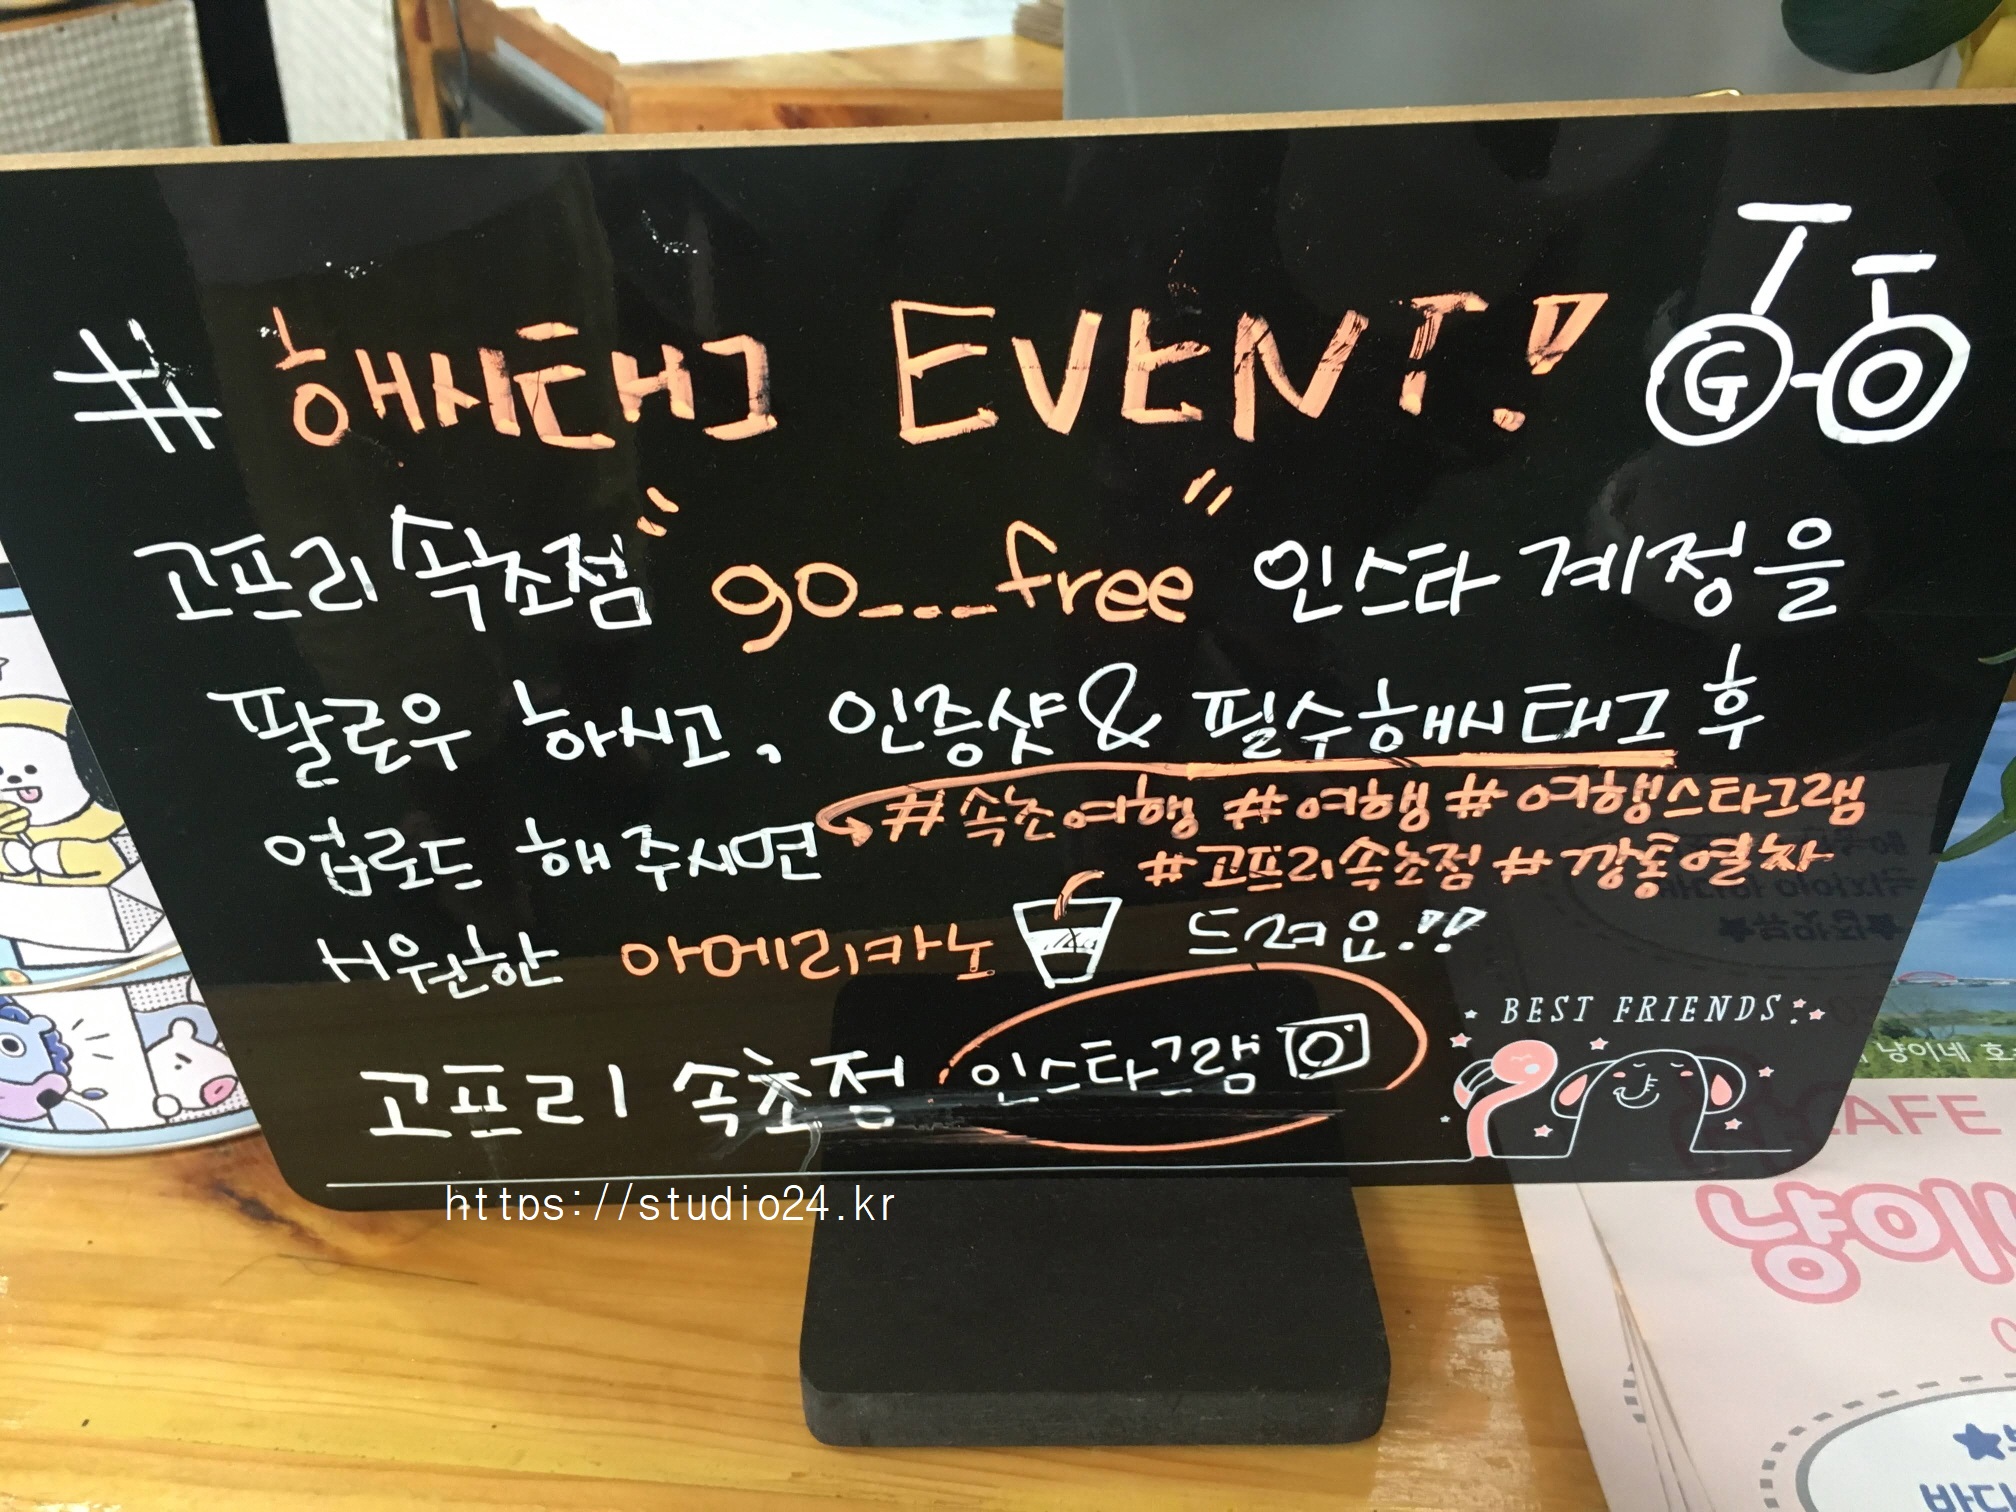 # 해시태그 EVENT!
GO
고프리 속초점 "go___free" 인스타 계정을
팔로우 하시고, 인증샷 & 필수해시태그 후
업로드 해 주시면 #속초여행 #여행 #여행스타그램
#고프리속초점 #깡통열차
시원한 아메리카노 드려요!!
고프리 속초점 인스타그램
BEST FRIENDS
https://studio24.kr
냥이네 호
CAFE
냥이네